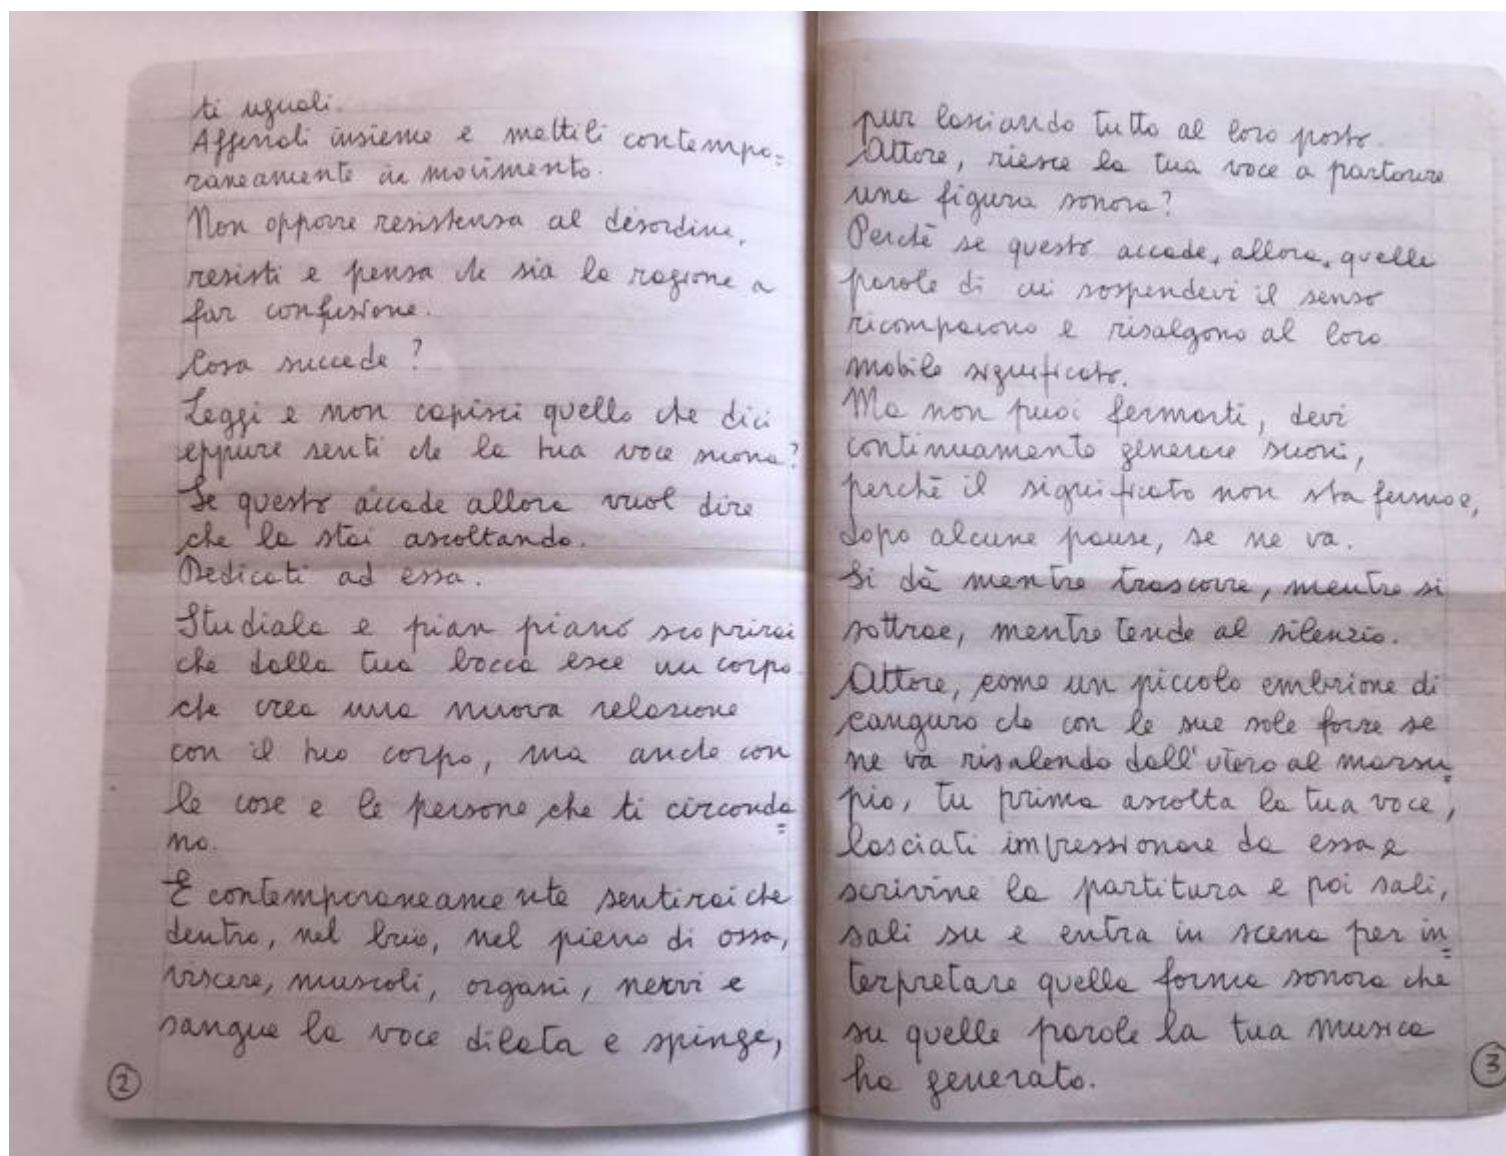 ti uguali.
Afferrali insieme e mettili contempo=
raneamente in movimento.
Non opporre resistenza al disordine,
resisti e pensa che sia la ragione a
far confusione.
Cosa succede?
Leggi e non capisci quello che dici
eppure senti che la tua voce suona?
Se questo accade allora vuol dire
che la stai ascoltando.
Dedicati ad essa.
Studiala e pian piano scoprirai
che dalla tua bocca esce un corpo
che crea una nuova relazione
con il tuo corpo, ma anche con
le cose e le persone che ti circonda=
no.
E contemporaneamente sentirai che
dentro, nel buio, nel pieno di ossa,
viscere, muscoli, organi, nervi e
sangue la voce dilata e spinge,
2
pur lasciando tutto al loro posto.
Attore, riesce la tua voce a partorire
una figura sonora?
Perchè se questo accade, allora, quelle
parole di cui sospendevi il senso
ricompaiono e risalgono al loro
mobile significato.
Ma non puoi fermarti, devi
continuamente generare suoni,
perchè il significato non sta fermo e,
dopo alcune pause, se ne va.
Si dà mentre trascorre, mentre si
sottrae, mentre tende al silenzio.
Attore, come un piccolo embrione di
canguro che con le sue sole forze se
ne va risalendo dall'utero al marsu=
pio, tu prima ascolta la tua voce,
lasciati impressionare da essa e
scrivine la partitura e poi sali,
sali su e entra in scena per in=
terpretare quella forma sonora che
su quelle parole la tua musica
ha generato.
3